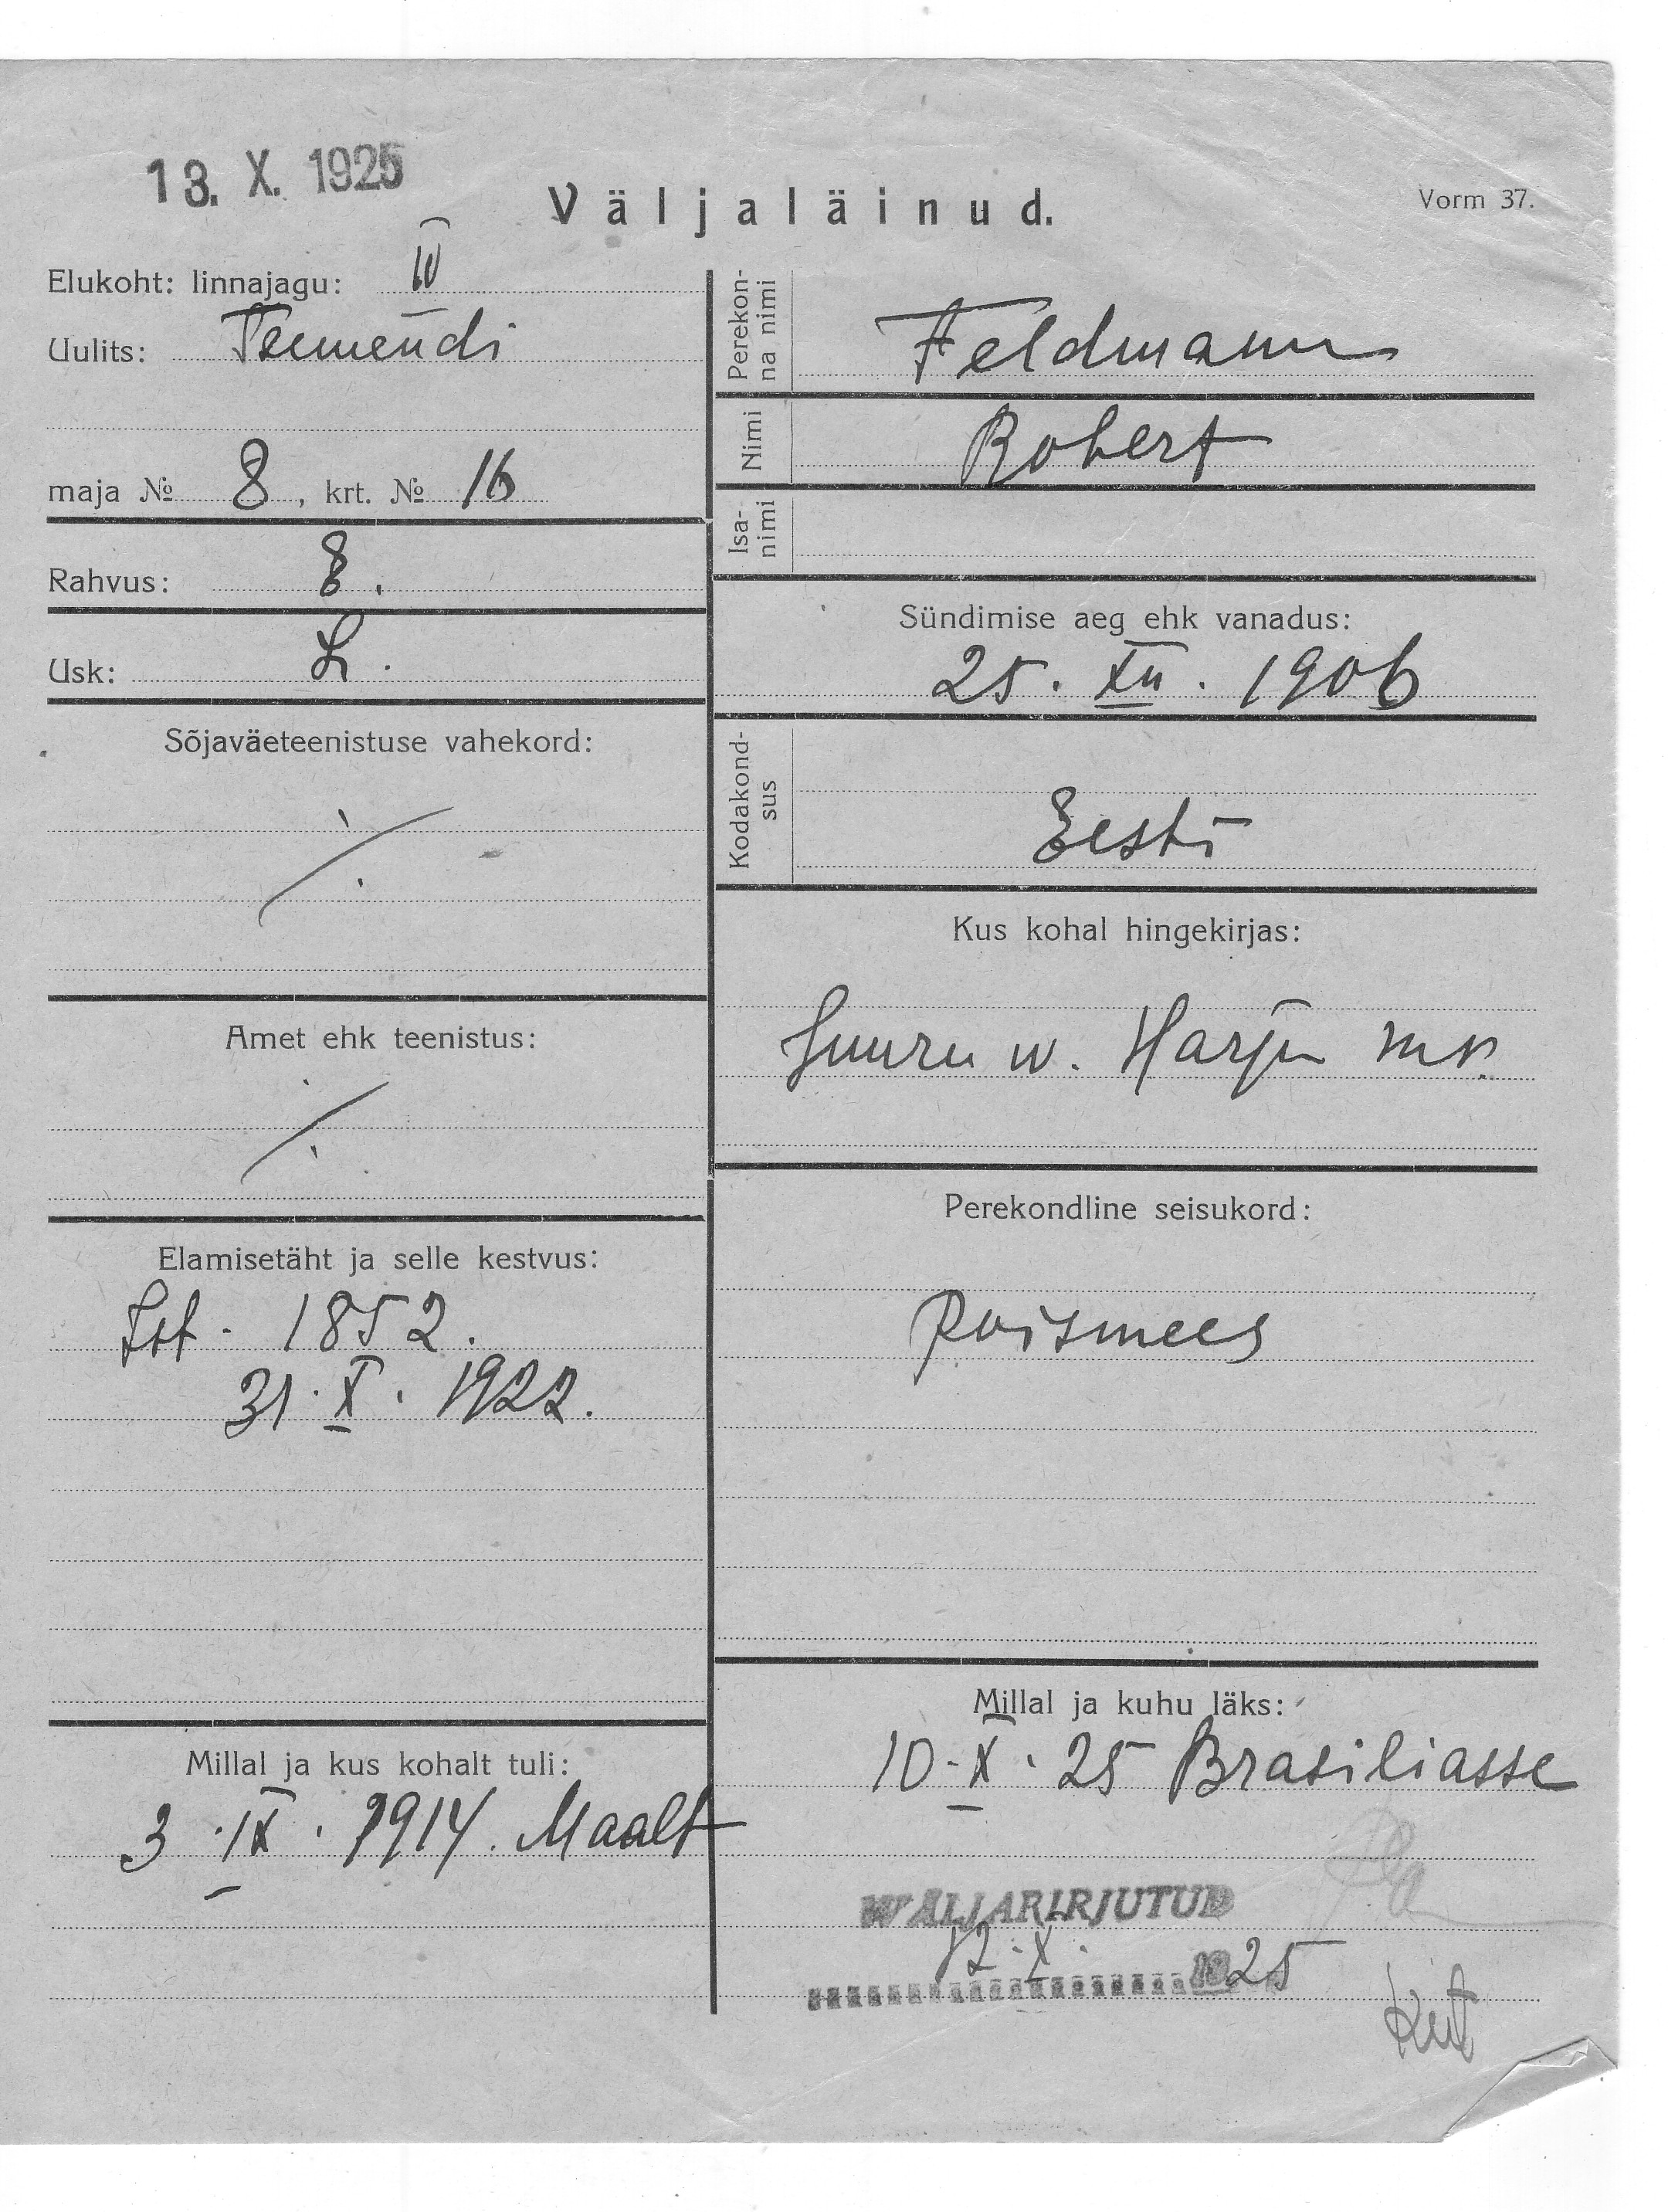 13. X. 1925
Väljaläinud.
Vorm 37.
Elukoht: linnajagu: IV
Uulits:
maja № 8, krt. № 16
Rahvus: E.
Usk: L.
Sõjaväeteenistuse vahekord:
Amet ehk teenistus:
Elamisetäht ja selle kestvus:
1852.
31. X. 1922.
Millal ja kus kohalt tuli:
3. IX. 1914. Maalt
Perekon-
na nimi
Feldmann
Nimi
Robert
Isa-
nimi
Sündimise aeg ehk vanadus:
25. XII. 1906
Kodakond-
sus
Eesti
Kus kohal hingekirjas:
w. Harju mk.
Perekondline seisukord:
Poismees
Millal ja kuhu läks:
10. X. 25 Brasiliasse
WÄLJAKIRJUTUD
12. X. 1925